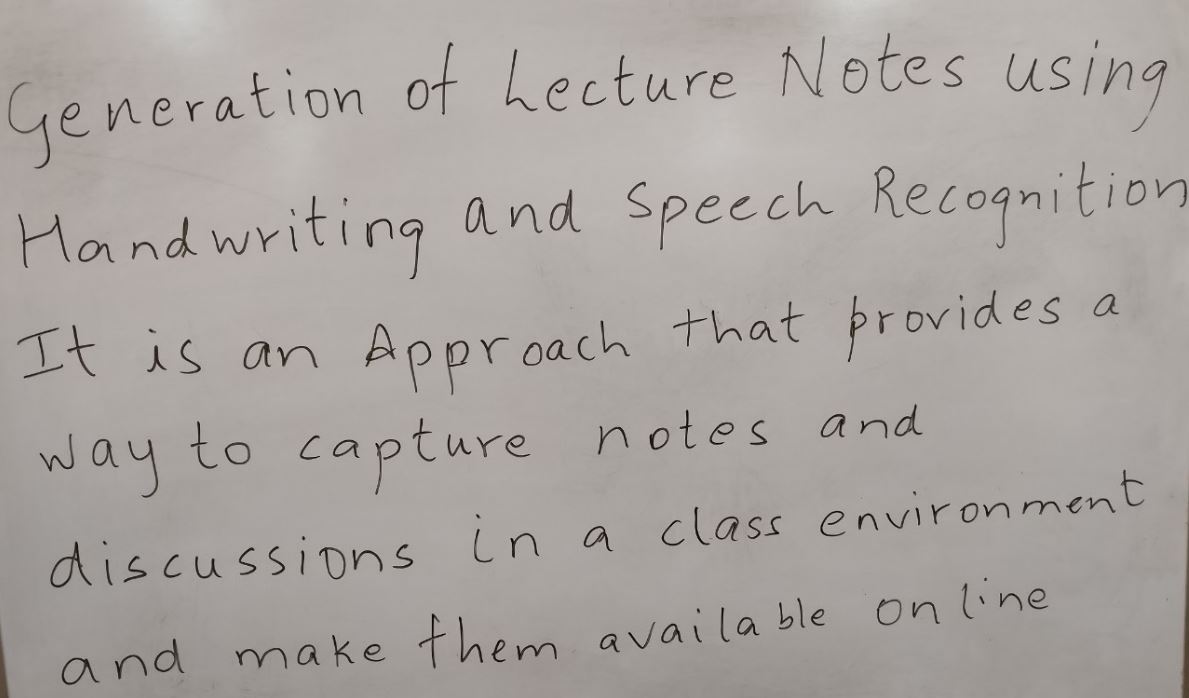 Generation of Lecture Notes using
Handwriting and Speech Recognition
It is an Approach that provides a
way to capture notes and
discussions in a class environment
and make them available online